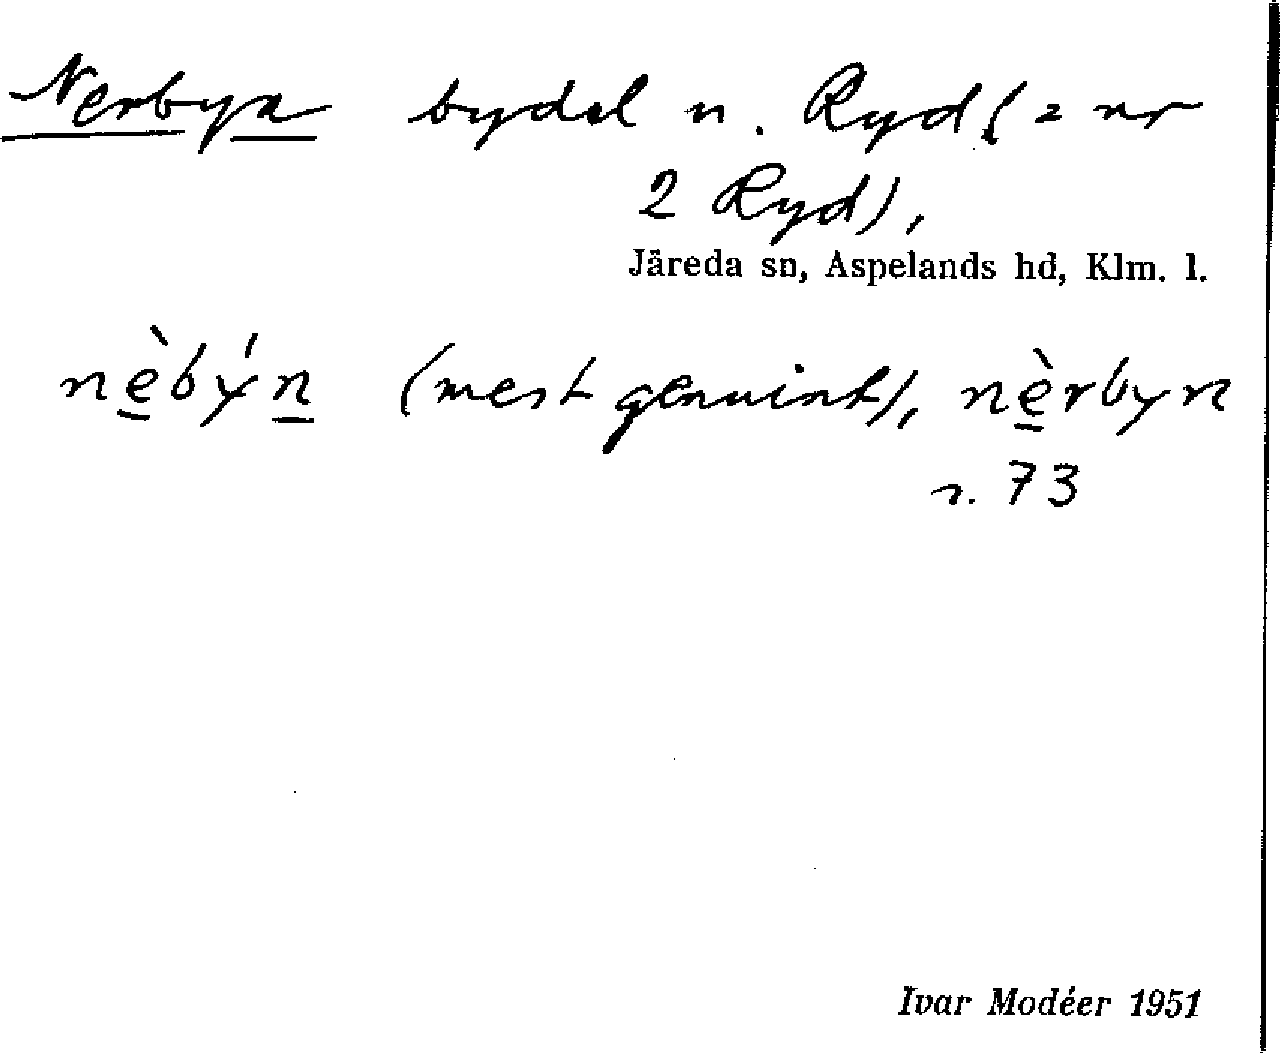 Nerbyn bydel n. Ryd (= nr
2 Ryd),
Järeda sn, Aspelands hd, Klm. l.
nèbýn (mest genuint), nèrbyn
s. 73
Ivar Modéer 1951